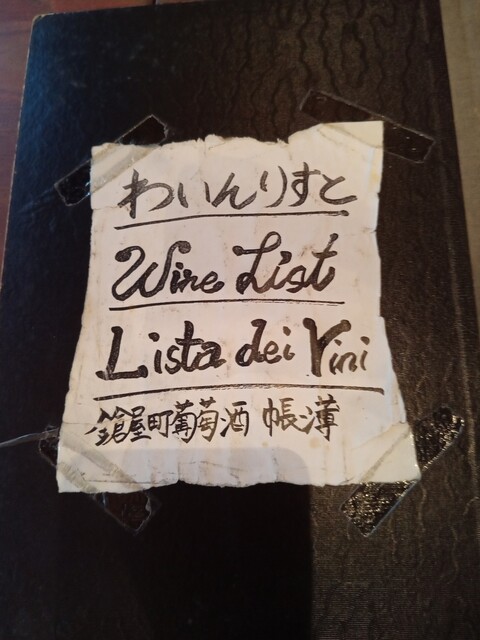 わいんりすと
Wine List
Lista dei Vini
鎗屋町葡萄酒 帳薄